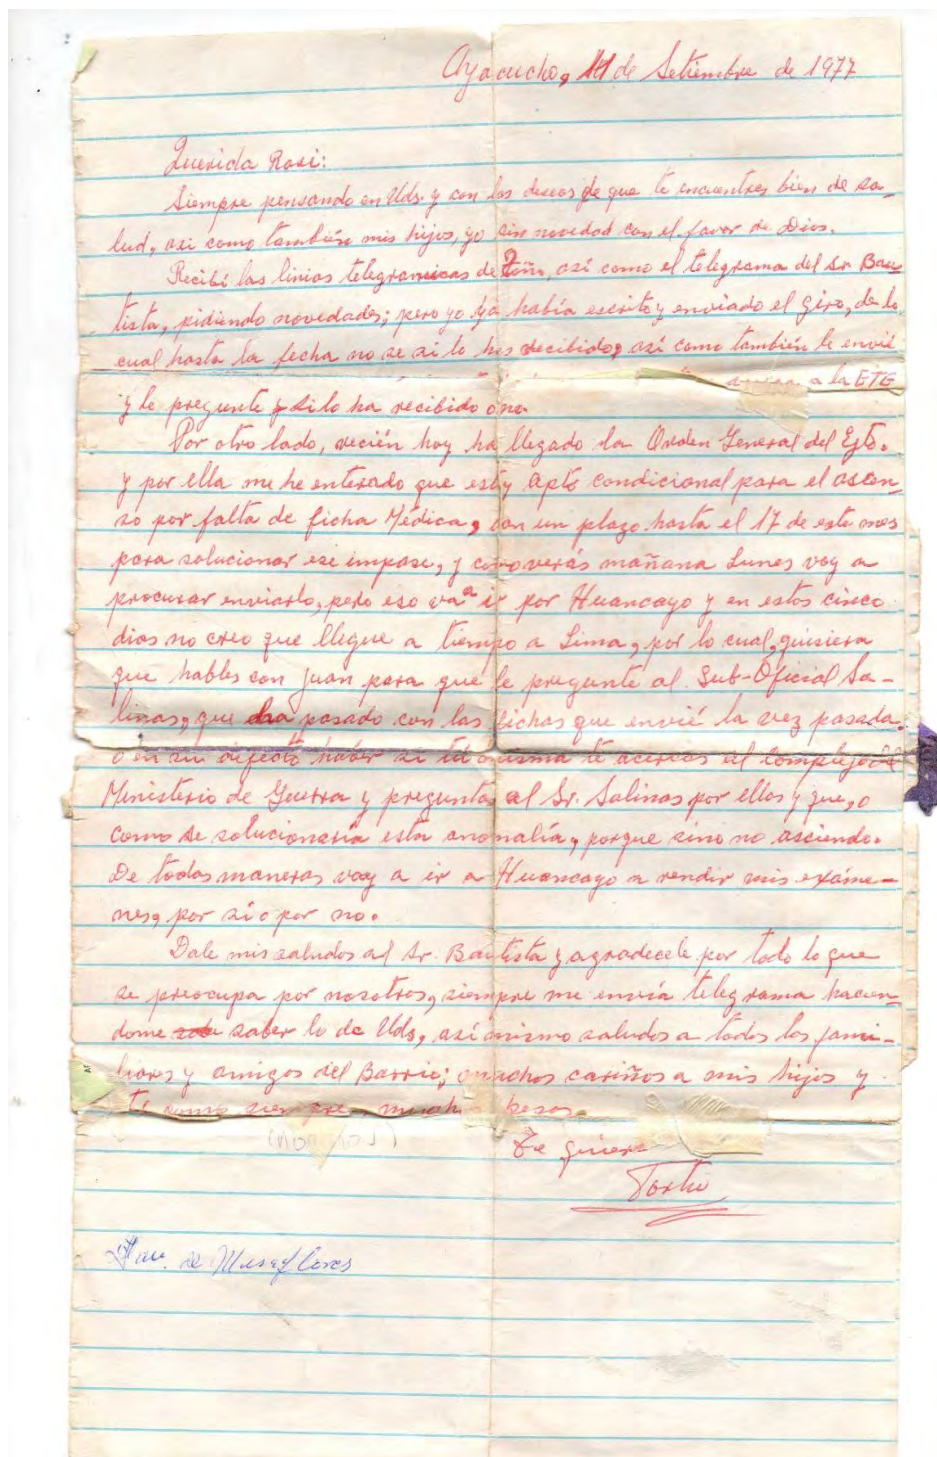 Ayacucho, 11 de Setiembre de 1977
Querida Rosi:
Siempre pensando en Uds. y con los deseos de que te encuentres bien de sa-
lud, asi como también mis hijos, yo sin novedad con el favor de Dios.
Recibí las linias telegramicas de Toño, asi como el telegrama del Sr. Bau
tista, pidiendo novedades; pero yo ya había escrito y enviado el giro, de lo
cual hasta la fecha no se si lo has recibido, asi como también le envié
a la ETE
y le pregunte si lo ha recibido o no.
Por otro lado, recién hoy ha llegado la Orden General del Ejto.
y por ella me he enterado que estoy Apto condicional para el ascen-
so por falta de ficha Médica, con un plazo hasta el 17 de este mes
para solucionar ese impase, y como verás mañana Lunes voy a
procurar enviarlo, pero eso va a ir por Huancayo y en estos cinco
dias no creo que llegue a tiempo a Lima, por lo cual, quisiera
que hables con Juan para que le pregunte al Sub-Oficial Sa-
linas, que ha pasado con las fichas que envié la vez pasada.
o en su defecto haber si tú misma te acercas al Complejo del
Ministerio de Guerra y preguntas al Sr. Salinas por ellas y que, o
como se solucionaría esta anomalía, porque sino no asciendo.
De todas maneras voy a ir a Huancayo a rendir mis exáme-
nes, por sí o por no.
Dale mis saludos al Sr. Bautista y agradecele por todo lo que
se preocupa por nosotros, siempre me envía telegrama hacien-
dome saber lo de Uds, asi mismo saludos a todos los fami-
liares y amigos del Barrio; muchos cariños a mis hijos y
ti como siempre muchos besos.
Te quiere